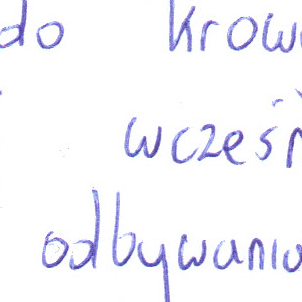 do krow
wcześn
odbywania